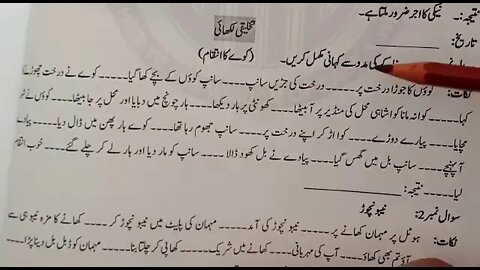 نتیجہ:۔ نیکی کا اجر ضرور ملتا ہے۔
تخلیقی لکھائی
تاریخ: ________ (کوے کا انتقام)
کی مدد سے کہانی مکمل کریں۔
نکات: کوؤں کا جوڑا درخت پر ۔۔۔۔۔ درخت کی جڑیں سانپ ۔۔۔۔۔ سانپ کوؤں کے بچے کھا گیا۔۔۔۔۔ کوے نے درخت چھوڑنے
کہا۔۔۔۔۔ کوا نہ مانا کوا شاہی محل کی منڈیر پر آ بیٹھا۔۔۔۔۔ کھونٹی پر ہار دیکھا۔۔۔۔۔ ہار چونچ میں دبایا اور محل پر جا بیٹھا۔۔۔۔۔ کوؤں نے شور
مچایا۔۔۔۔۔ پیادے دوڑے۔۔۔۔۔ کوا اڑ کر اپنے درخت پر۔۔۔۔۔ سانپ جھوم رہا تھا۔۔۔۔۔ کوے ہار پھن میں ڈال دیا۔۔۔۔۔ پیادے
آ پہنچے۔۔۔۔۔ سانپ بل میں گھس گیا۔۔۔۔۔ پیادے نے بل کھود ڈالا۔۔۔۔۔ سانپ کو مار دیا اور ہار لے کر چلے گئے۔۔۔۔۔ خوب انتقام
لیا۔۔۔۔۔ نتیجہ: ________
سوال نمبر2: نیبو نچوڑ
نکات: ہوٹل پر مہمان کھانے پر ۔۔۔۔۔ نیبو نچوڑ کی آمد۔۔۔۔۔ مہمان کی پلیٹ میں نیبو نچوڑ کر۔۔۔۔۔ کھانے کا مزہ نیبو ہی سے
آؤ تم بھی کھاؤ۔۔۔۔۔ آپ کی مہربانی۔۔۔۔۔ کھانے میں شریک۔۔۔۔۔ کھا پی کر چلتا بنا۔۔۔۔۔ مہمان کو ڈبل بل دینا پڑا۔۔۔۔۔